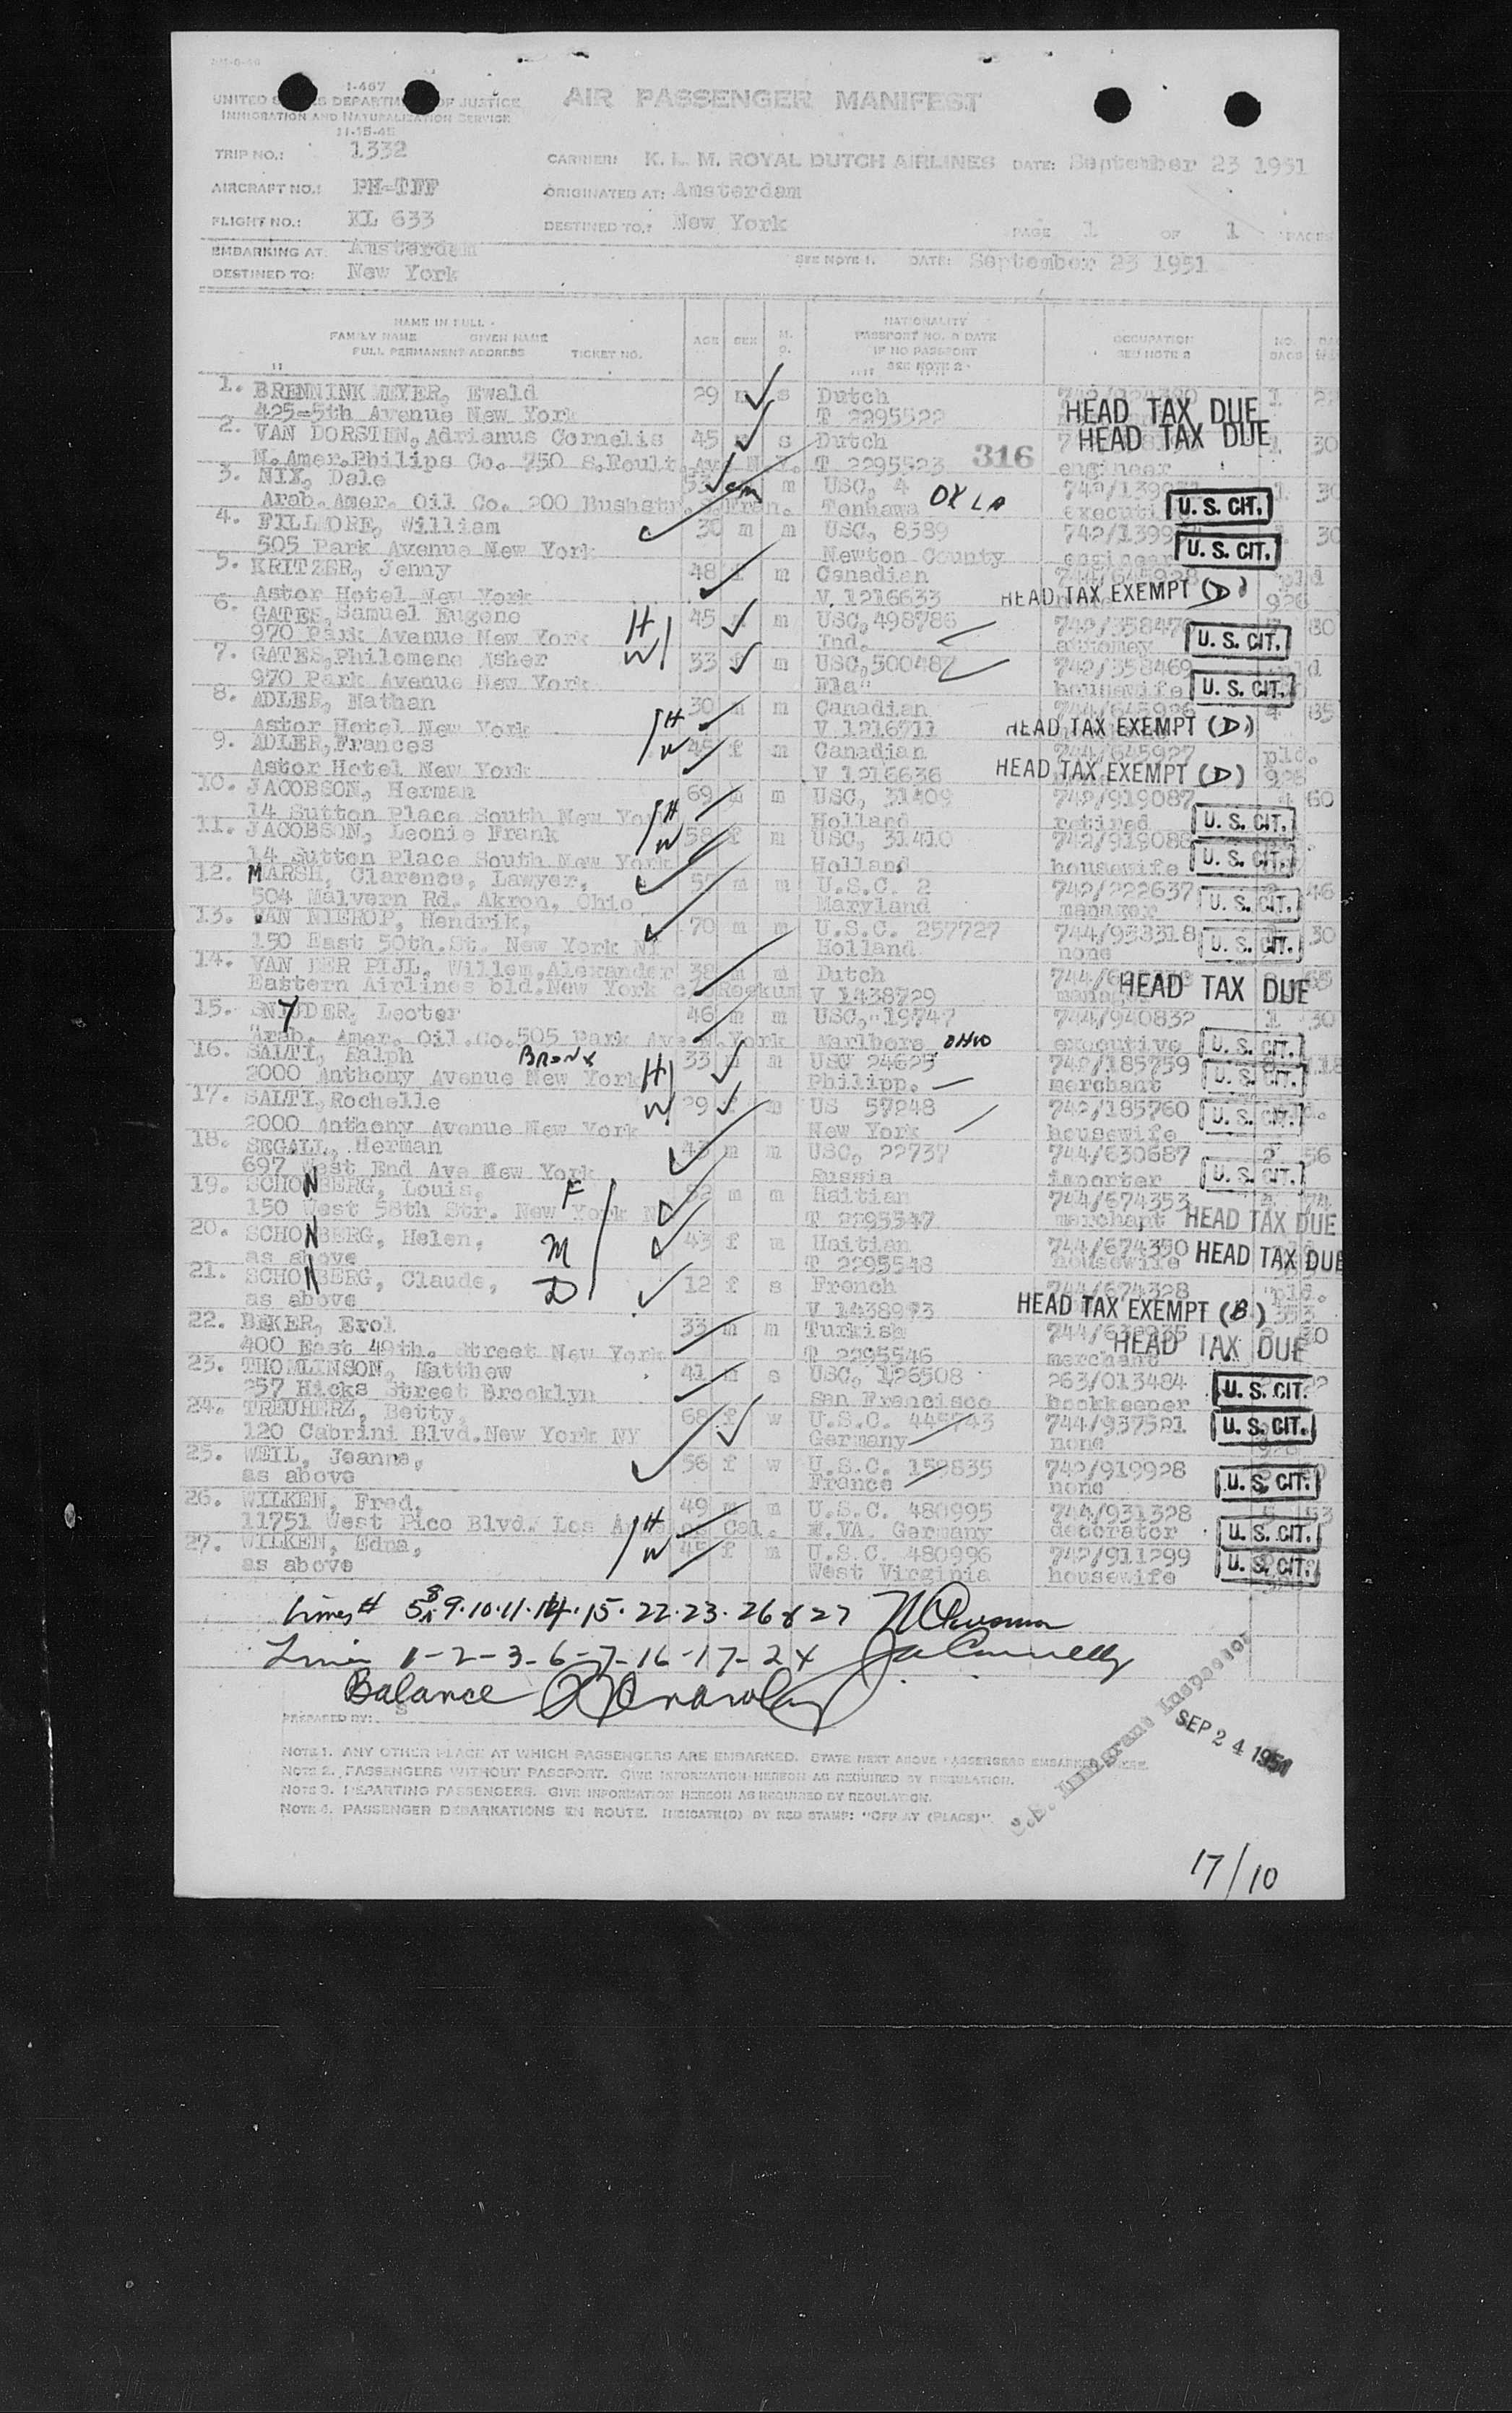 I-467
UNITED STATES DEPARTMENT OF JUSTICE
IMMIGRATION AND NATURALIZATION SERVICE
11-15-45
AIR PASSENGER MANIFEST
TRIP NO.: 1332 CARRIER: K. L. M. ROYAL DUTCH AIRLINES DATE: September 23 1951
AIRCRAFT NO.: PH-TFF ORIGINATED AT: Amsterdam
FLIGHT NO.: KL 633 DESTINED TO: New York PAGE 1 OF 1 PAGES
EMBARKING AT Amsterdam
DESTINED TO: New York SEE NOTE 1. DATE: September 23 1951
NAME IN FULL NATIONALITY
FAMILY NAME GIVEN NAME AGE SEX M. S. PASSPORT NO. & DATE OCCUPATION NO. BAGS
FULL PERMANENT ADDRESS TICKET NO. IF NO PASSPORT SEE NOTE 2
SEE NOTE 2
1. BRENNINKMEYER, Ewald 29 m s Dutch 1
425-5th Avenue New York T 2295522 HEAD TAX DUE
2. VAN DORSTEN, Adrianus Cornelis 45 m s Dutch HEAD TAX DUE 1 30
N.Amer.Philips Co. 750 S.Foult. Ave N.Y. T 2295523 316 engineer
3. NIX, Dale 53 m USC, 4 OKLA 1 30
Arab.Amer. Oil Co. 200 Bushstr. S.Fran. Tonkawa executi U. S. CIT.
4. FILLMORE, William 30 m m USC, 8589 30
505 Park Avenue New York Newton County engineer U. S. CIT.
5. KRITZER, Jenny 48 f m Canadian 744/645928 pld
Astor Hotel New York V 1216633 HEAD TAX EXEMPT (D) 926
6. GATES, Samuel Eugene H 45 m m USC, 498786 30
970 Park Avenue New York Ind. attorney U. S. CIT.
7. GATES, Philomene Asher W 33 f m USC, 500487 742/358469
970 Park Avenue New York Fla" housewife U. S. CIT.
8. ADLER, Nathan H 30 m m Canadian 744/645926 4 85
Astor Hotel New York V 1216711 HEAD TAX EXEMPT (D)
9. ADLER, Frances W 45 f m Canadian 744/645927 pld.
Astor Hotel New York V 1216636 HEAD TAX EXEMPT (D) 926
10. JACOBSON, Herman H 69 m m USC, 31409 742/919087 4 60
14 Sutton Place South New York Holland retired U. S. CIT.
11. JACOBSON, Leonie Frank W 58 f m USC, 31410 742/919088
14 Sutton Place South New York Holland housewife U. S. CIT.
12. MARSH, Clarence, Lawyer, 55 m m U.S.C. 2 742/222637 46
504 Malvern Rd. Akron, Ohio Maryland manager U. S. CIT.
13. VAN NIEROP, Hendrik, 70 m m U.S.C. 257727 744/938318 30
150 East 50th.St. New York NY Holland none U. S. CIT.
14. VAN DER PIJL, Willem, Alexander 38 m m Dutch 65
Eastern Airlines bld.New York c/o Reekum V 1438729 manager HEAD TAX DUE
15. SNYDER, Lecter 46 m m USC, 19747 744/940832 1 30
Arab. Amer. Oil.Co.505 Park Ave N.York Marlboro OHIO executive U. S. CIT.
16. SALTI, Ralph BRONX H 33 m m USC 24625 742/185759 118
2000 Anthony Avenue New York Philipp. merchant U. S. CIT.
17. SALTI, Rochelle W 29 f m US 57248 742/185760
2000 Anthony Avenue New York New York housewife U. S. CIT.
18. SEGALL, Herman 43 m m USC, 22737 744/630687 2 56
697 West End Ave New York Russia importer U. S. CIT.
19. SCHONBERG, Louis, F 52 m m Haitian 744/674353 74
150 West 58th Str. New York NY T 2295547 merchant HEAD TAX DUE
20. SCHONBERG, Helen, M 43 f m Haitian 744/674350
as above T 2295548 housewife HEAD TAX DUE
21. SCHONBERG, Claude, D 12 f s French 744/674328 pld.
as above V 1438973 HEAD TAX EXEMPT (B) 353
22. BEKER, Erol 33 m m Turkish
400 East 49th. Street New York T 2295546 merchant HEAD TAX DUE
23. THOMLINSON, Matthew 41 m s USC, 126508 263/013484 22
257 Hicks Street Brooklyn San Francisco bookkeeper U. S. CIT.
24. TREUHERZ, Betty, 68 f w U.S.C. 445743 744/937521
120 Cabrini Blvd.New York NY Germany none U. S. CIT.
25. WEIL, Jeanne, 56 f w U.S.C. 159835 742/919928
as above France none U. S. CIT.
26. WILKEN, Fred, H 49 m m U.S.C. 480995 744/931328 5 53
11751 West Pico Blvd. Los Angeles Cal. W.VA. Germany decorator U. S. CIT.
27. WILKEN, Edna, W 45 f m U.S.C. 480996 742/911299
as above West Virginia housewife U. S. CIT.
Lines # 5 8 9.10.11.14.15.22.23.26 & 27
Lines 1-2-3-6-7-16-17-24
Balance
PREPARED BY:
U.S. Immigrant Inspector
SEP 24 1951
NOTE 1. ANY OTHER PLACE AT WHICH PASSENGERS ARE EMBARKED. STATE NEXT ABOVE PASSENGERS EMBARKED THERE.
NOTE 2. PASSENGERS WITHOUT PASSPORT. GIVE INFORMATION HEREON AS REQUIRED BY REGULATION.
NOTE 3. DEPARTING PASSENGERS. GIVE INFORMATION HEREON AS REQUIRED BY REGULATION.
NOTE 4. PASSENGER DEBARKATIONS EN ROUTE. INDICATE(D) BY RED STAMP: "OFF AT (PLACE)"
17/10